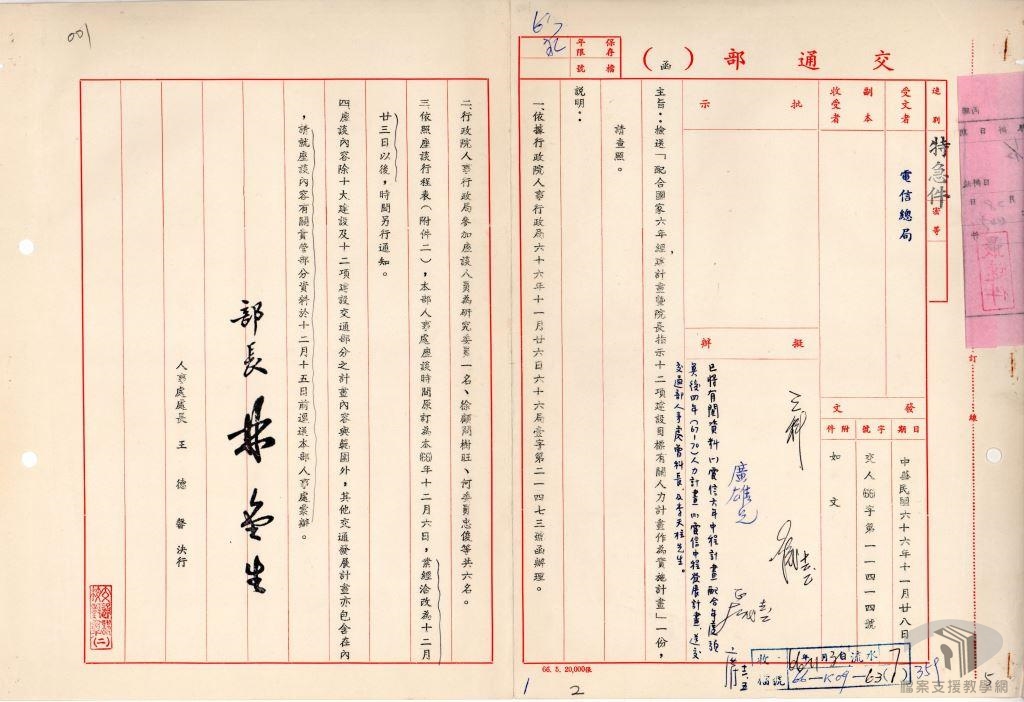 交通部（函）
保存年限
檔號
速別
特急件
密等
受文者
電信總局
副本收受者
批示
擬辦
發文
日期
中華民國六十六年十一月廿八日
字號
交人(66)字第一一四一四號
附件
如文
已將有關資料(1)電信六年中程計畫配合年度預
(2)電信中程發展計畫送交
交通部人事處曾科長及李天柱先生。
主旨：檢送「配合國家六年經建計畫暨院長指示十二項建設目標有關人力計畫作為實施計畫」一份，
請查照。
說明：
一、依據行政院人事行政局六十六年十一月廿六日六十六局壹字第二一四七三號函辦理。
二、行政院人事行政局參加座談人員為研究委員一名、徐顧問樹旺、何委員忠俊等共六名。
三、依照座談行程表（附件二），本部人事處座談時間原訂為本(66)年十二月六日，業經洽改為十二月
廿三日以後，時間另行通知。
四、座談內容除十大建設及十二項建設交通部分之計畫內容與範圍外，其他交通發展計畫亦包含在內
，請就座談內容有關貴管部分資料於十二月十五日前逕送本部人事處彙辦。
部長 林金生
人事處處長 王德馨 決行
訂
線
收
流水
編號
66-K09-63(1)
359
66. 5. 20,000張
001
1
2
5
檔案支援教學網